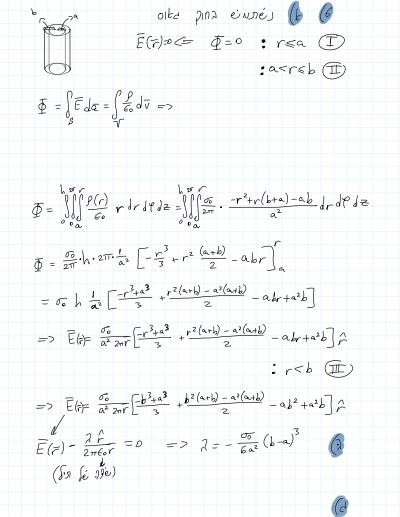 b a
6 b) נשתמש בחוק גאוס
I) r≤a : Φ=0 => E̅(r̅)=0
II) a<r≤b :
Φ = ∫_S E̅ da̅ = ∫_V ρ/ε₀ dv̅ =>
Φ = ∫₀^h ∫₀^{2π} ∫_a^r ρ(r)/ε₀ r dr dφ dz = ∫₀^h ∫₀^{2π} ∫_a^r σ₀/2π · (-r²+r(b+a)-ab)/a² dr dφ dz
Φ = σ₀/2π · h · 2π · 1/a² [-r³/3 + r² (a+b)/2 - abr]_a^r
= σ₀ h 1/a² [(-r³+a³)/3 + (r²(a+b) - a²(a+b))/2 - abr + a²b]
=> E̅(r̅) = σ₀/(a² 2πr) [(-r³+a³)/3 + (r²(a+b) - a²(a+b))/2 - abr + a²b] r̂
III) r<b :
=> E̅(r̅) = σ₀/(a² 2πr) [(-b³+a³)/3 + (b²(a+b) - a²(a+b))/2 - ab² + a²b] r̂
E̅(r̅) - λ r̂/(2πε₀r) = 0 => λ = - σ₀/(6a²) (b-a)³